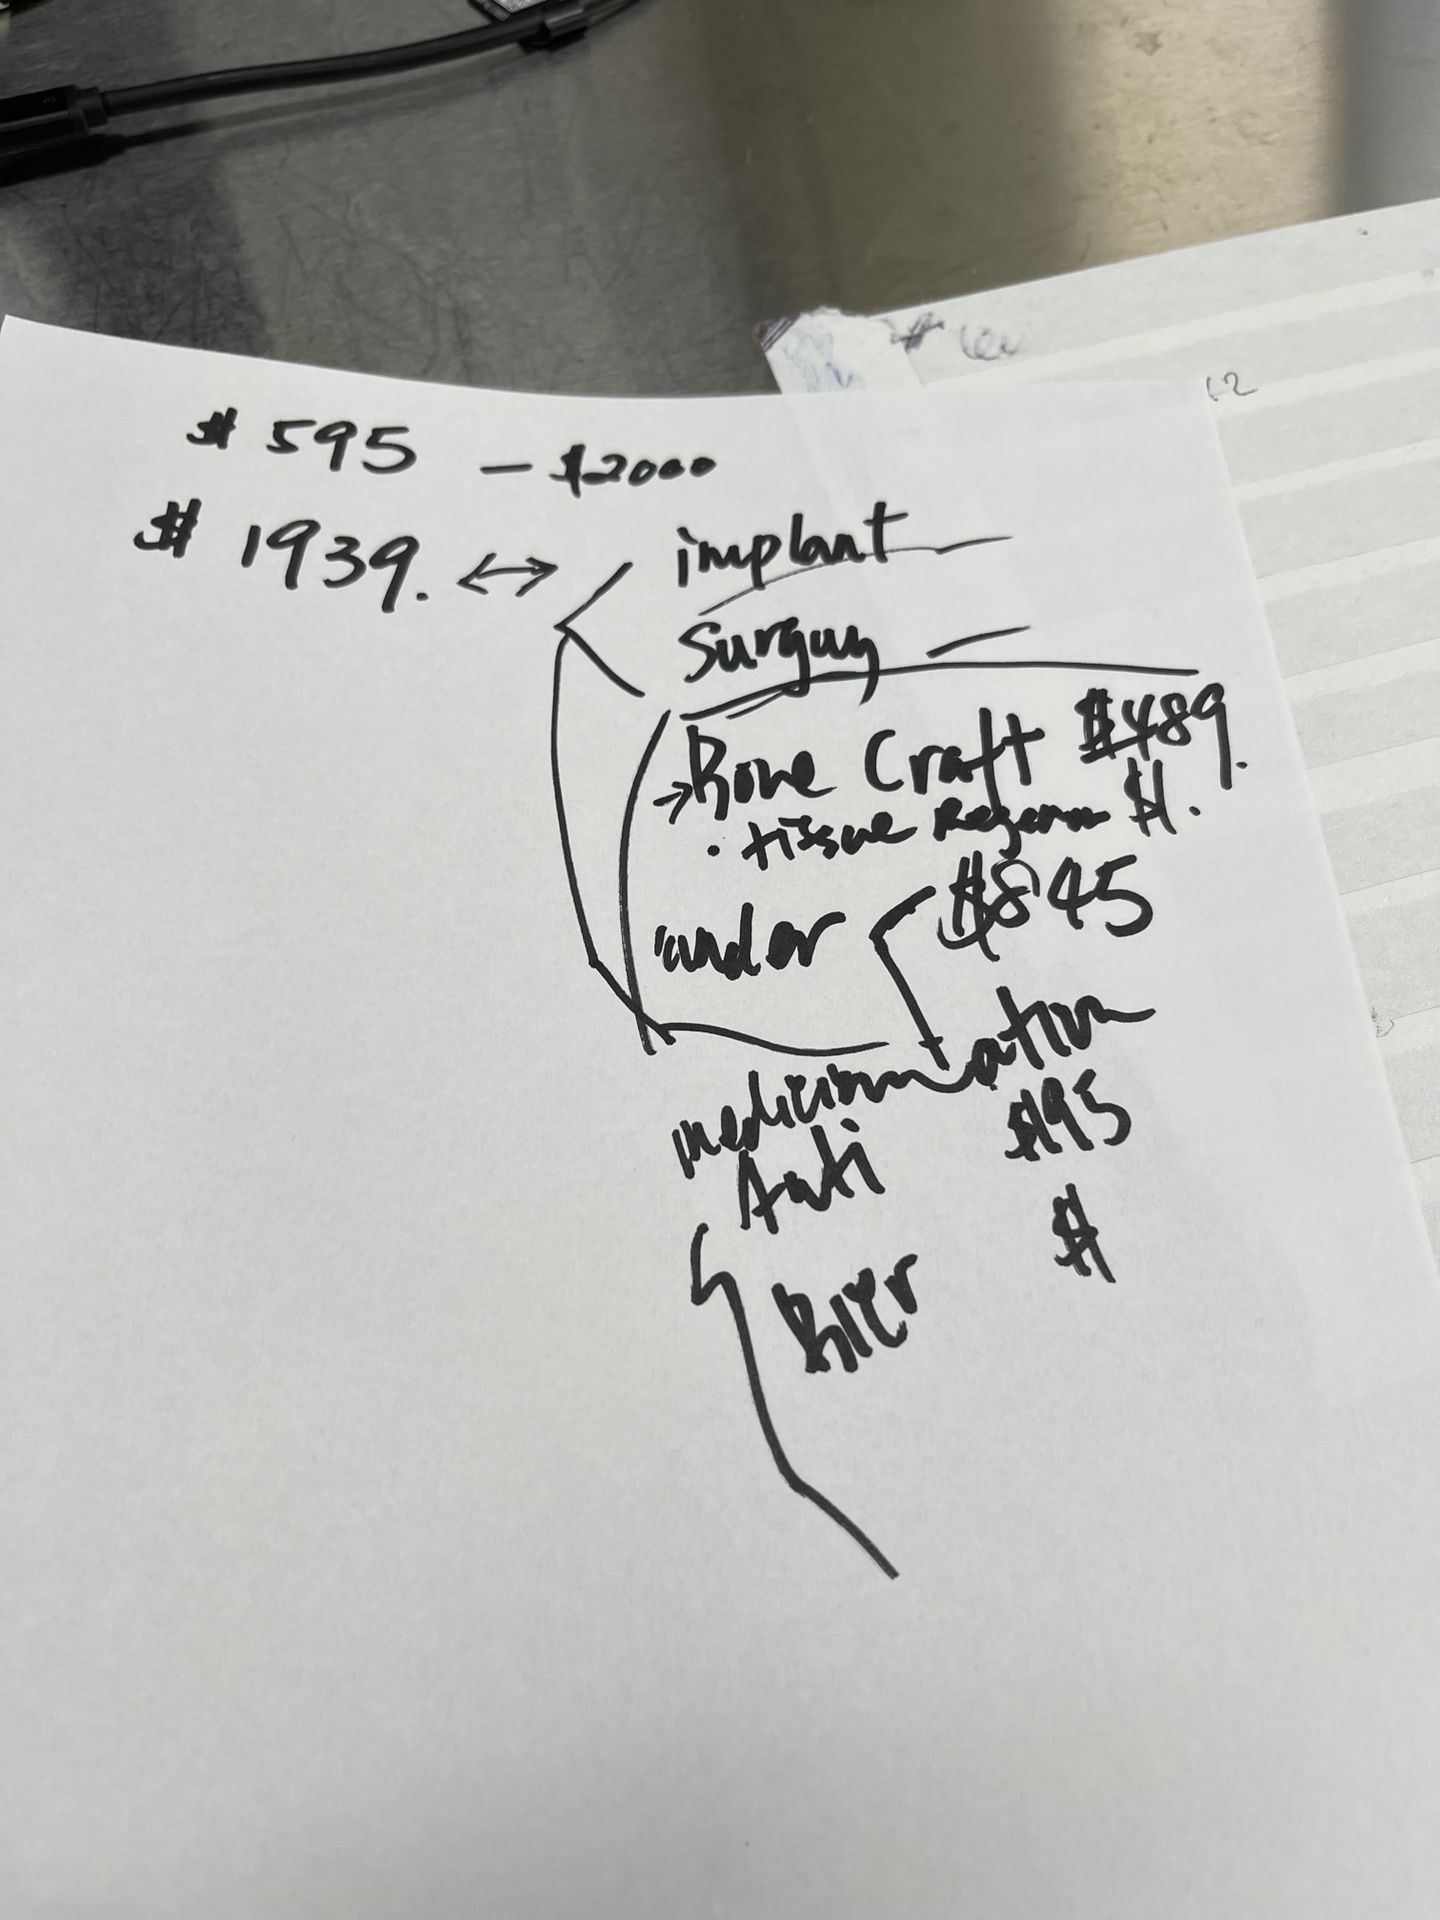 $ 595 — $2000
$ 1939. ↔ implant —
Surguy —
→ Bone Craft $489.
• tissue Regenn $.
under $845
medicination
Anti $195
Bler $
12